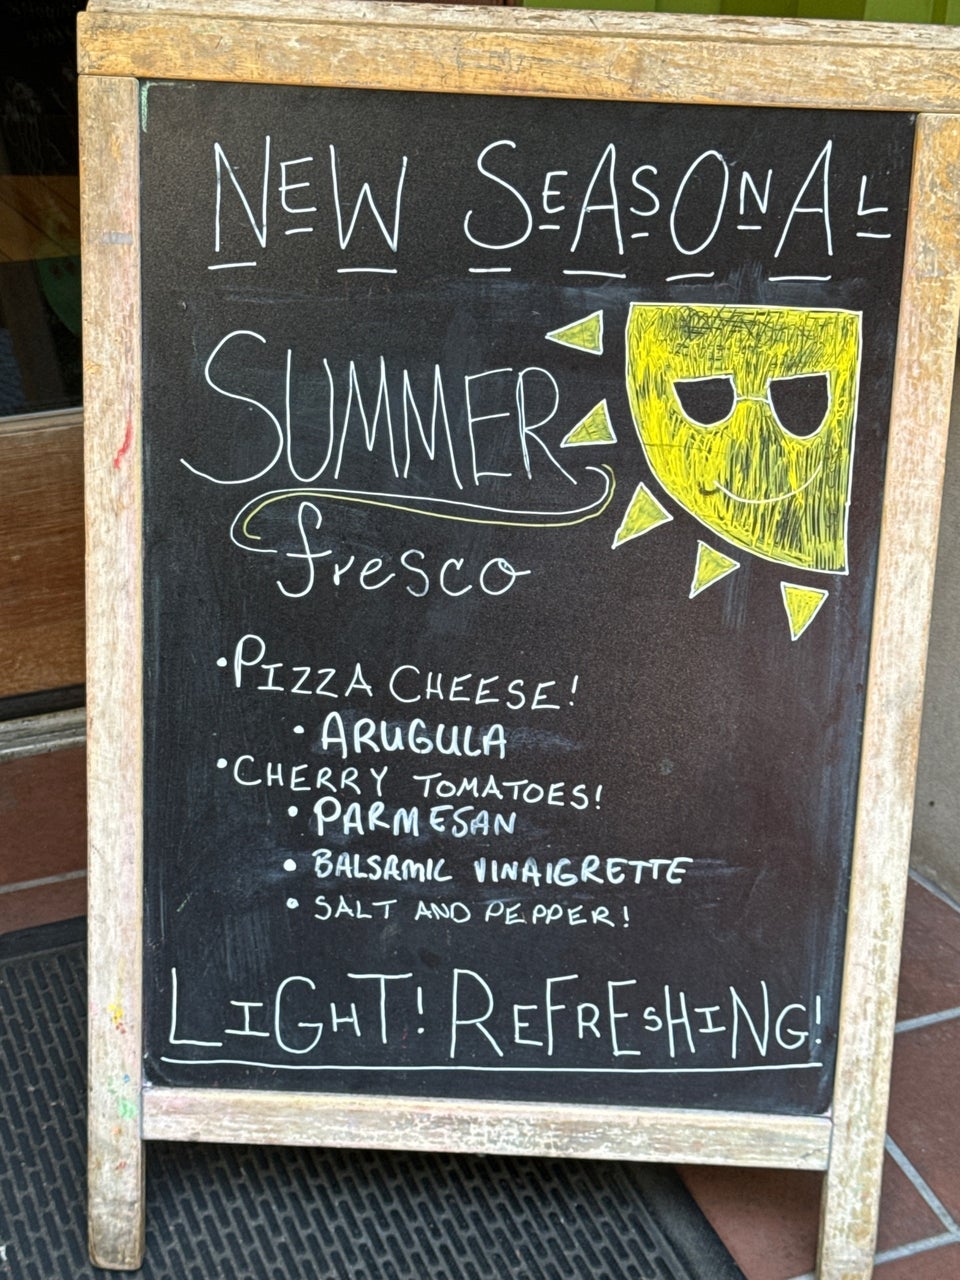 NEW SEASONAL
SUMMER
fresco
• PIZZA CHEESE!
• ARUGULA
• CHERRY TOMATOES!
• PARMESAN
• BALSAMIC VINAIGRETTE
• SALT AND PEPPER!
LIGHT! REFRESHING!